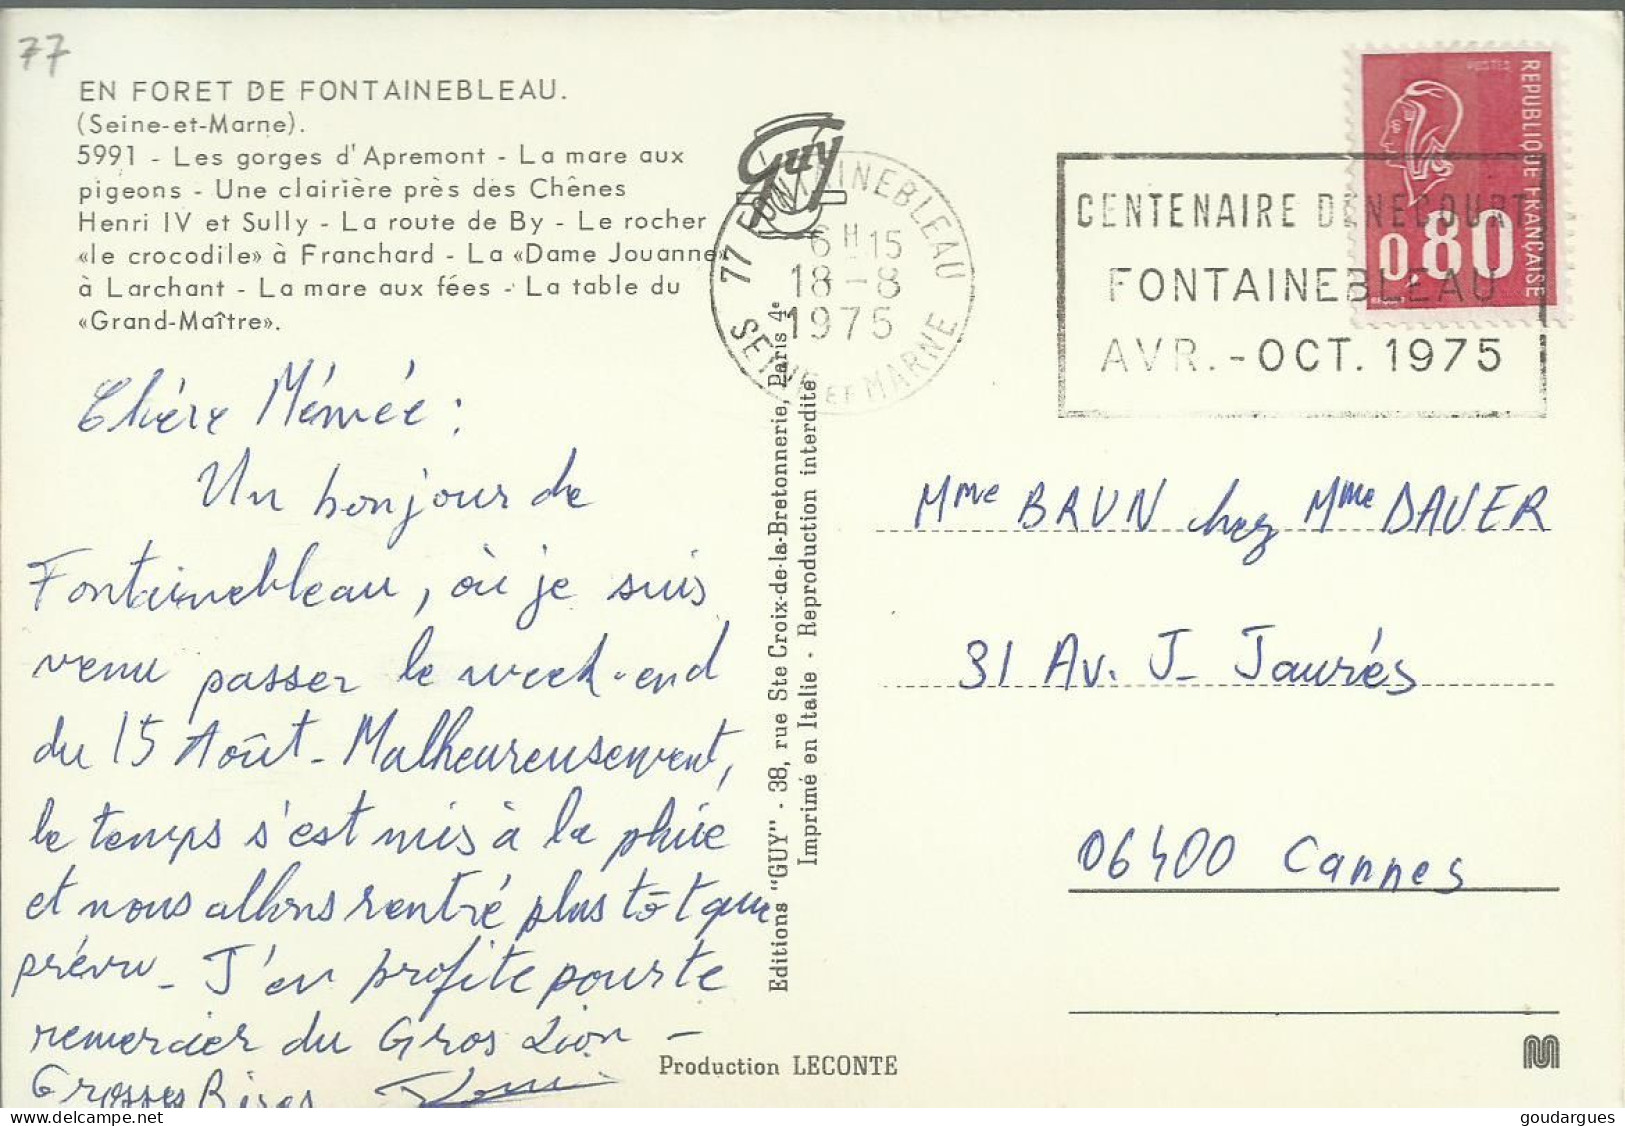 77
EN FORET DE FONTAINEBLEAU.
(Seine-et-Marne).
5991 - Les gorges d'Apremont - La mare aux
pigeons - Une clairière près des Chênes
Henri IV et Sully - La route de By - Le rocher
«le crocodile» à Franchard - La «Dame Jouanne»
à Larchant - La mare aux fées - La table du
«Grand-Maître».
Guy
77 FONTAINEBLEAU
6H15
18-8
1975
SEINE ET MARNE
CENTENAIRE DENECOURT
FONTAINEBLEAU
AVR. - OCT. 1975
POSTES
REPUBLIQUE FRANÇAISE
0,80
Chére Mémée :
Un bonjour de
Fontainebleau, où je suis
venu passer le week-end
du 15 Août - Malheureusement,
le temps s'est mis à la pluie
et nous allons rentré plus tôt que
prévu - J'en profite pour te
remercier du Gros Lion -
Grosses Bises
Editions "GUY" - 38, rue Ste Croix-de-la-Bretonnerie, Paris 4e
Imprimé en Italie - Reproduction interdite
Mme BRUN chez Mme DAVER
31 Av. J- Jaurés
06400 Cannes
Production LECONTE
goudargues
© delcampe.net